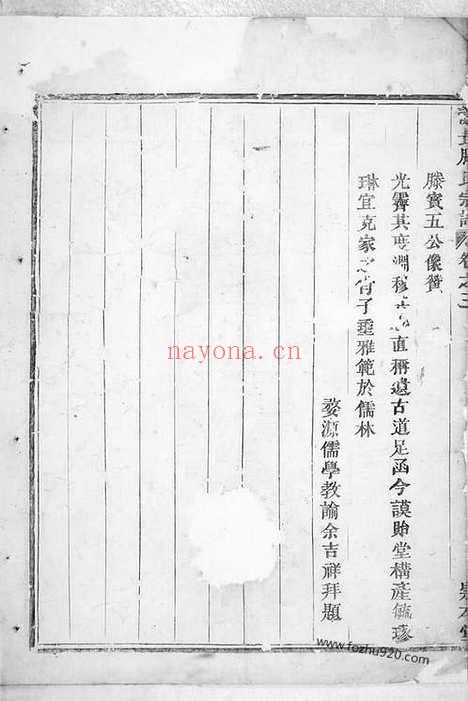 滕氏宗譜 卷之三
滕賓五公像贊
光霽其度淵穆其 直稱遺古道足函今謨貽堂構產毓璆
琳宜克家之肖子垂雅範於儒林
婺源儒學教諭余吉祥拜題
nayona.cn
www.fozhu920.com